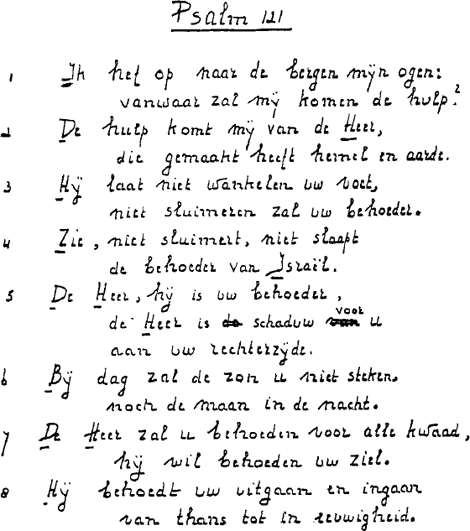 Psalm 121
1 Ik hef op naar de bergen mijn ogen:
vanwaar zal mij komen de hulp?
2 De hulp komt mij van de Heer,
die gemaakt heeft hemel en aarde.
3 Hij laat niet wankelen uw voet,
niet sluimeren zal uw behoeder.
4 Zie, niet sluimert, niet slaapt
de behoeder van Israël.
5 De Heer, hij is uw behoeder,
de Heer is de schaduw van voor u
aan uw rechterzijde.
6 Bij dag zal de zon u niet steken.
noch de maan in de nacht.
7 De Heer zal u behoeden voor alle kwaad,
hij wil behoeden uw ziel.
8 Hij behoedt uw uitgaan en ingaan
van thans tot in eeuwigheid.